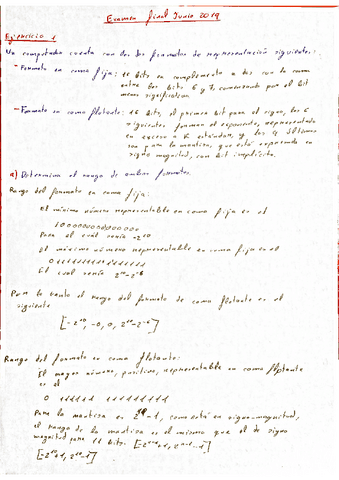 Examen final Junio 2019
Ejercicio 1
Un computador cuenta con los dos formatos de representación siguientes:
- Formato en coma fija: 16 bits en complemento a dos con la coma
entre los bits 6 y 7, comenzando por el bit
menos significativo.
- Formato en coma flotante: 16 bits, el primer bit para el signo, los 6
siguientes forman el exponente, representado
en exceso a estándar, y los 9 últimos
son para la mantisa, que está expresada en
signo magnitud, con bit implícito.
a) Determina el rango de ambos formatos.
Rango del formato en coma fija:
El mínimo número representable en coma fija es el
Para el cual sería -2^10
El máximo número representable en coma fija es el
El cual sería 2^10-2^-6
Por lo tanto el rango del formato de coma flotante es el
siguiente
[-2^10, -0, 0, 2^10-2^-6]
Rango del formato en coma flotante:
El mayor número, positivo, representable en coma flotante
es el
0 111111 111111111
Para la mantisa es -1, como está en signo-magnitud,
el rango de la mantisa es el mismo que el de signo
magnitud para 11 bits.